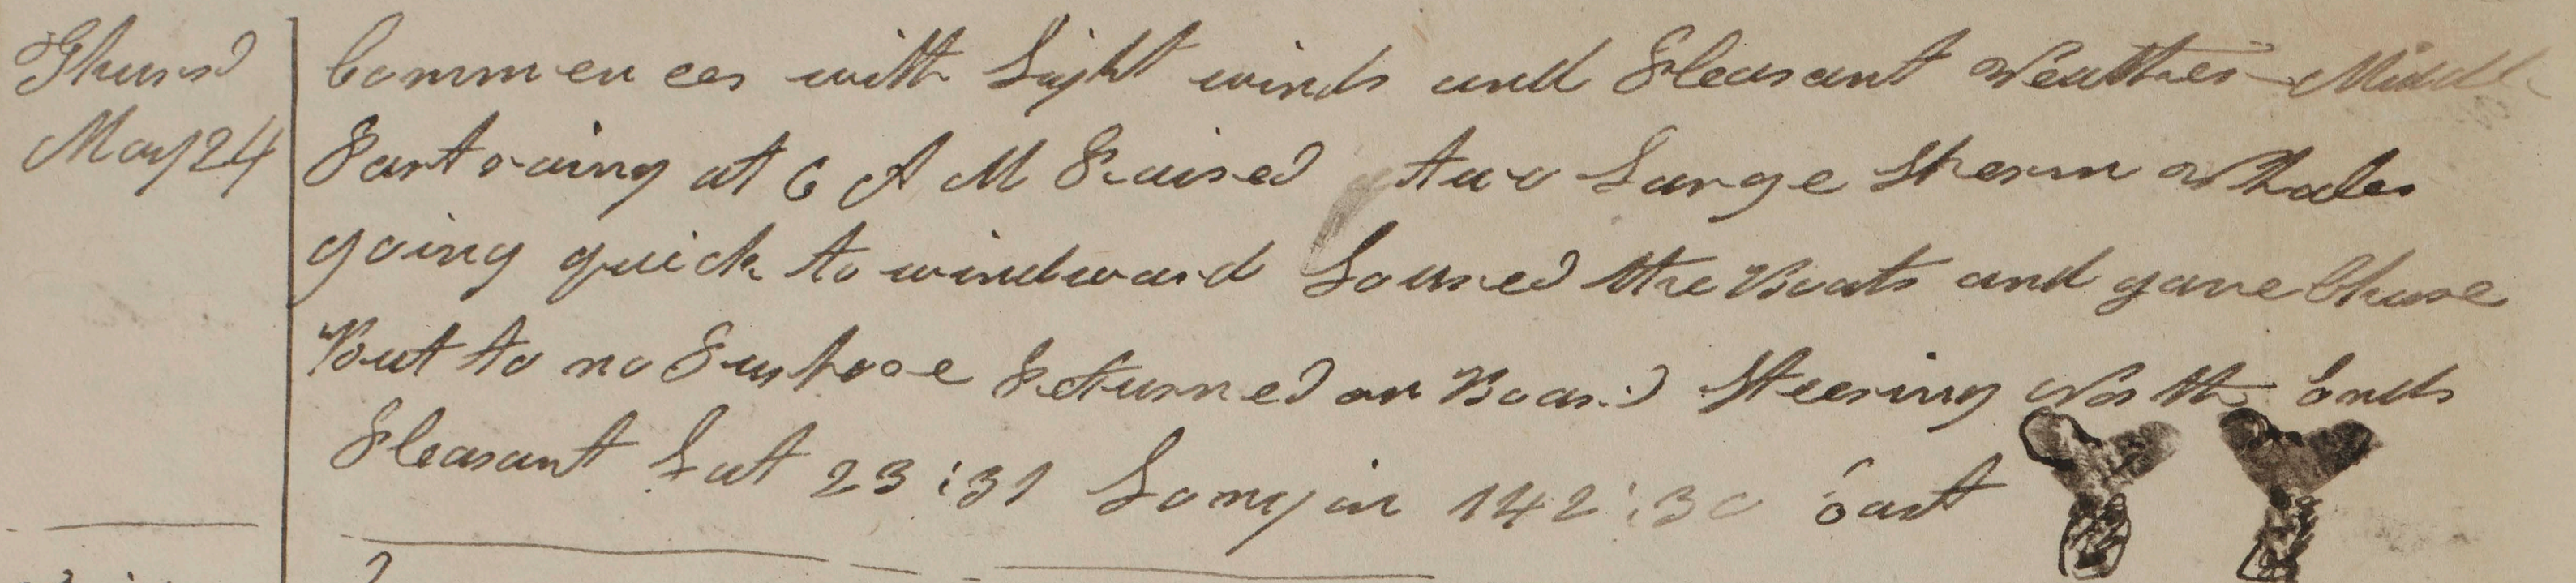 Thursd
May 24
Commences with Light winds and Pleasant Weather Middle
Part raing at 6 A M Raised two Large Sperm Whales
going quick to windward Loured the Boats and gave Chase
But to no Purpose Returned on Board Steering North Ends
Pleasant Lat 23:31 Long in 142:30 East